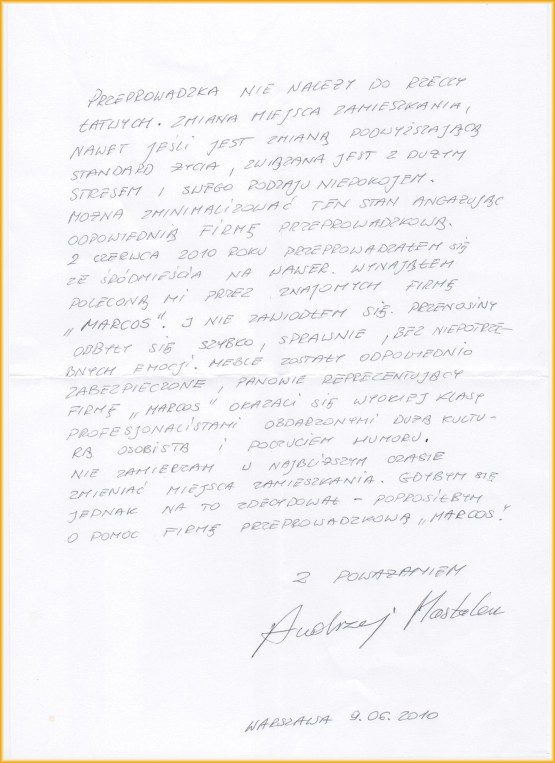 PRZEPROWADZKA NIE NALEŻY DO RZECZY
ŁATWYCH. ZMIANA MIEJSCA ZAMIESZKANIA,
NAWET JEŚLI JEST ZMIANĄ PODWYŻSZAJĄCĄ
STANDARD ŻYCIA, ZWIĄZANA JEST Z DUŻYM
STRESEM I SWEGO RODZAJU NIEPOKOJEM.
MOŻNA ZMINIMALIZOWAĆ TEN STAN ANGAŻUJĄC
ODPOWIEDNIĄ FIRMĘ PRZEPROWADZKOWĄ.
2 CZERWCA 2010 ROKU PRZEPROWADZAŁEM SIĘ
ZE ŚRÓDMIEŚCIA NA WAWER. WYNAJĄŁEM
POLECONĄ MI PRZEZ ZNAJOMYCH FIRMĘ
„MARCOS". I NIE ZAWIODŁEM SIĘ. PRZENOSINY
ODBYŁY SIĘ SZYBKO, SPRAWNIE, BEZ NIEPOTRZE-
BNYCH EMOCJI. MEBLE ZOSTAŁY ODPOWIEDNIO
ZABEZPIECZONE, PANOWIE REPREZENTUJĄCY
FIRMĘ „MARCOS" OKAZALI SIĘ WYSOKIEJ KLASY
PROFESJONALISTAMI OBDARZONYMI DUŻĄ KULTU-
RĄ OSOBISTĄ I POCZUCIEM HUMORU.
NIE ZAMIERZAM W NAJBLIŻSZYM CZASIE
ZMIENIAĆ MIEJSCA ZAMIESZKANIA. GDYBYM SIĘ
JEDNAK NA TO ZDECYDOWAŁ - POPROSIŁBYM
O POMOC FIRMĘ PRZEPROWADZKOWĄ „MARCOS".
Z POWAŻANIEM
Andrzej
WARSZAWA 9.06.2010